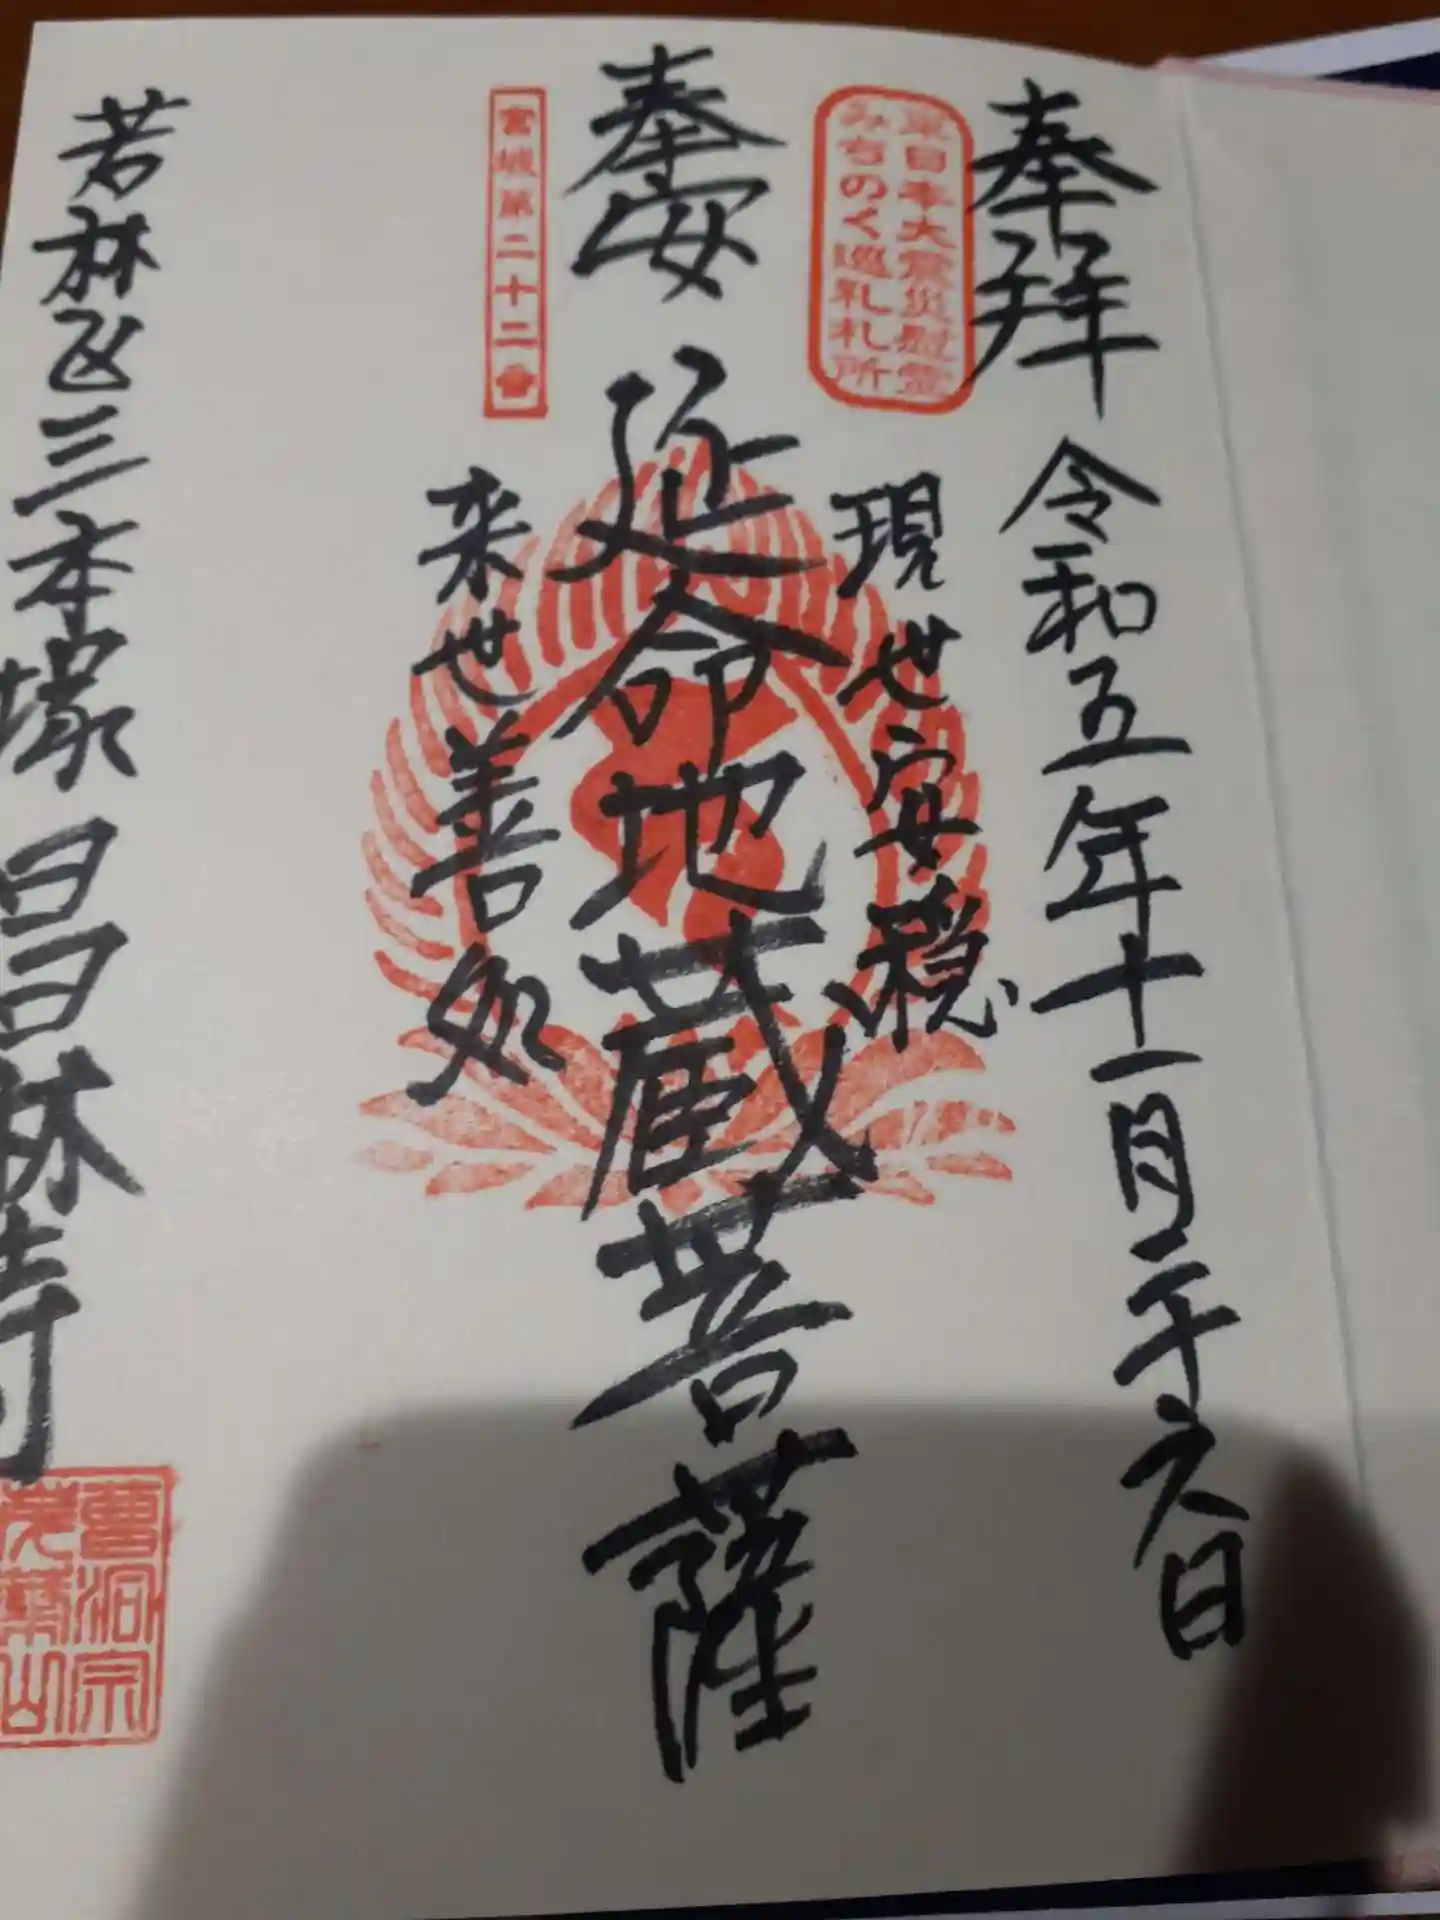 奉拝 令和五年十一月二十六日
東日本大震災慰霊
みちのく巡礼札所
現世安穏
奉安 延命地蔵菩薩
宮城第二十二番
来世善処
若林区三本塚 昌林寺
曹洞宗